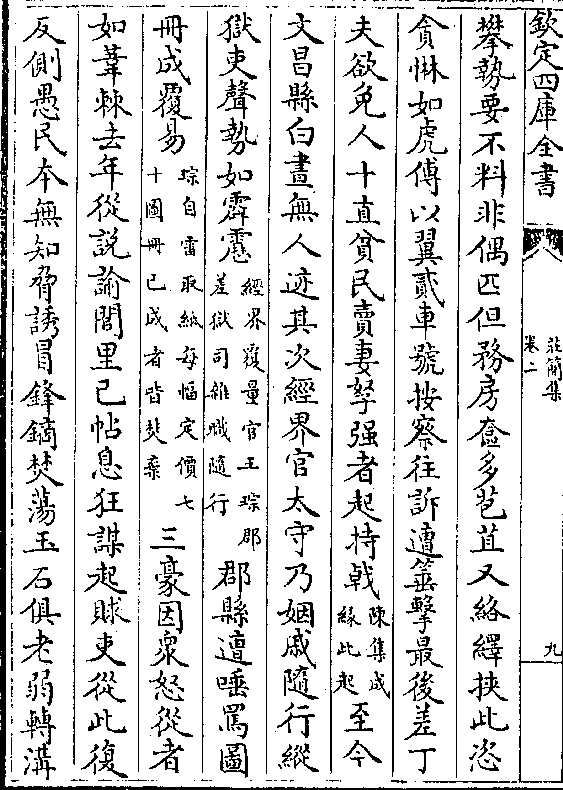 欽定四庫全書
莊簡集
卷二
九
攀勢要不料非偶匹但務房奩多苞苴又絡繹挾此恣
貪惏如虎傅以翼貳車號按察往訴遭箠擊最後差丁
夫欲免人十直貧民賣妻孥强者起持戟
陳集成
緣此起
至今
文昌縣白晝無人迹其次經界官太守乃姻戚隨行縱
獄吏聲勢如霹靂
經界覆量官王琮郡
差獄司雜職隨行
郡縣遭唾罵圖
冊成覆易
琮自雷取紙每幅定價七
十圖冊已成者皆焚棄
三豪因衆怒從者
如葦棘去年從説諭閭里已帖息狂謀起賕吏從此復
反側愚民本無知脅誘冒鋒鏑焚蕩玉石俱老弱轉溝